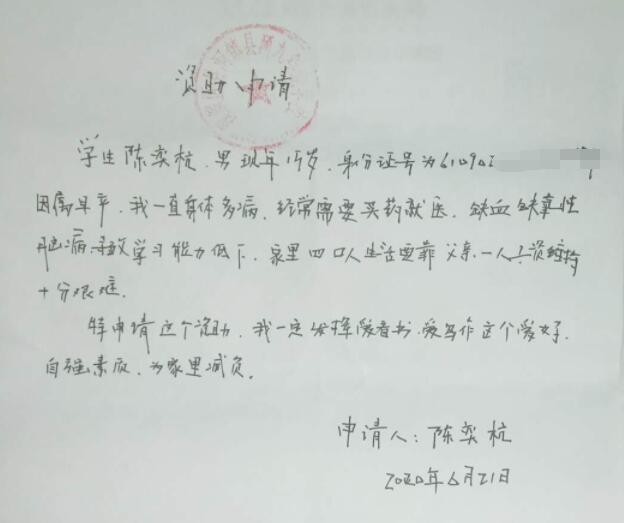 资助申请
学生陈奕杭，男现年15岁，身份证号为610902
因属早产，我一直身体多病，经常需要买药就医，缺血缺氧性
脑病导致学习能力低下，家里四口人生活要靠父亲一人工资维持
十分艰难.
特申请这个资助，我一定发挥爱看书.爱写作这个爱好.
自强素质，为家里减负。
申请人：陈奕杭
2020年6月21日